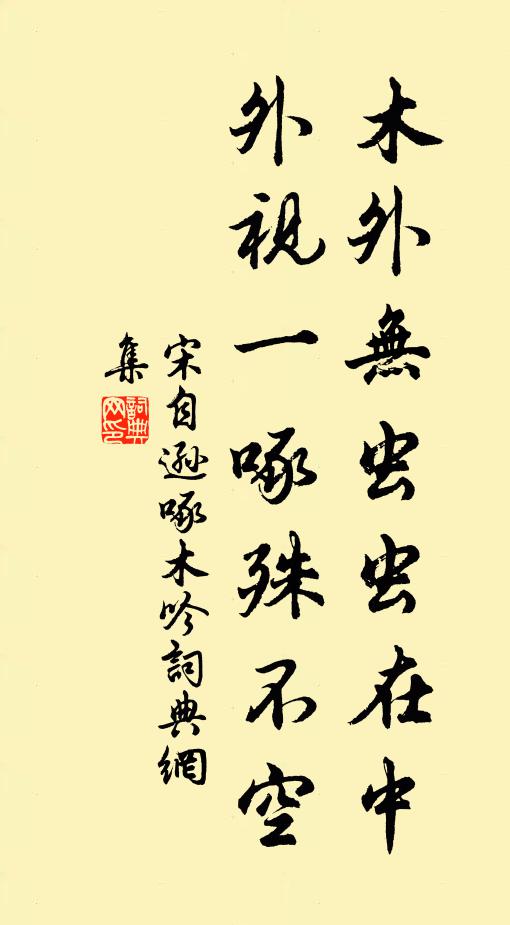 木外無虫虫在中
外視一啄殊不空
宋自遜啄木吟詞典網
集
詞典
网印